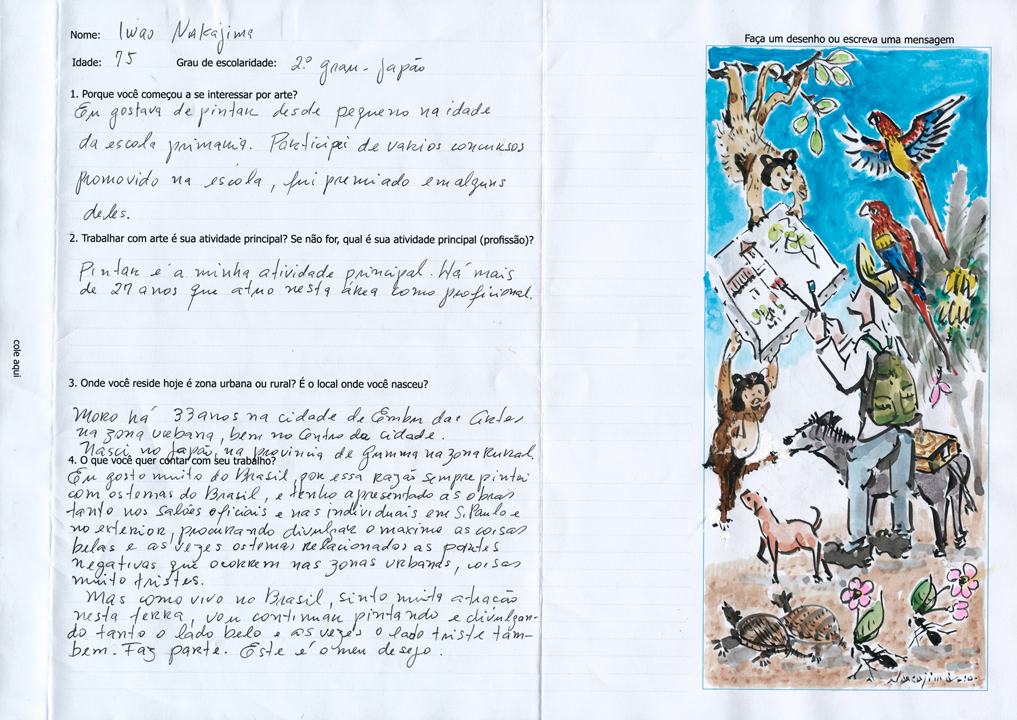 Nome: Iwao Nakajima
Idade: 75 Grau de escolaridade: 2.º grau - Japão
1. Porque você começou a se interessar por arte?
Eu gostava de pintar desde pequeno na idade
da escola primaria. Participei de varios concursos
promovido na escola, fui premiado em alguns
deles.
2. Trabalhar com arte é sua atividade principal? Se não for, qual é sua atividade principal (profissão)?
Pintar é a minha atividade principal. Há mais
de 27 anos que atuo nesta área como proficional.
3. Onde você reside hoje é zona urbana ou rural? É o local onde você nasceu?
Moro há 33 anos na cidade de Embu das Artes
na zona urbana, bem no Centro da cidade.
Nasci no Japão, na provincia de Gumma na zona Rural.
4. O que você quer contar com seu trabalho?
Eu gosto muito do Brasil, por essa razão sempre pintei
com os temas do Brasil, e tenho apresentado as obras
tanto nos salões oficiais e nas individuais em S. Paulo e
no exterior, procurando divulgar o maximo as coisas
belas e as vezes os temas relacionados as partes
negativas que ocorrem nas zonas urbanas, coisas
muito tristes.
Mas como vivo no Brasil, sinto muita atração
nesta terra, vou continuar pintando e divulgan-
do tanto o lado belo e as vezes o lado triste tam-
bem. Faz parte. Este é o meu desejo.
cole aqui
Faça um desenho ou escreva uma mensagem